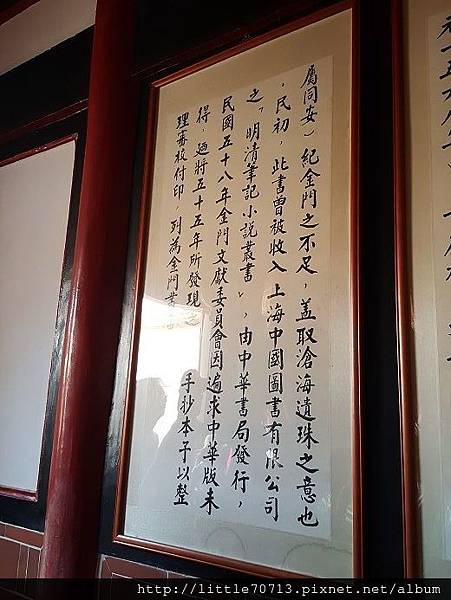 屬同安）紀金門之不足，蓋取滄海遺珠之意也
，民初，此書曾被收入上海中國圖書有限公司
之「明清筆記小說叢書」，由中華書局發行，
民國五十八年金門文獻委員會因遍求中華版未
得，廼將五十五年所發現之手抄本予以整
理審校付印，列為金門
http://little70713.pixnet.net/album